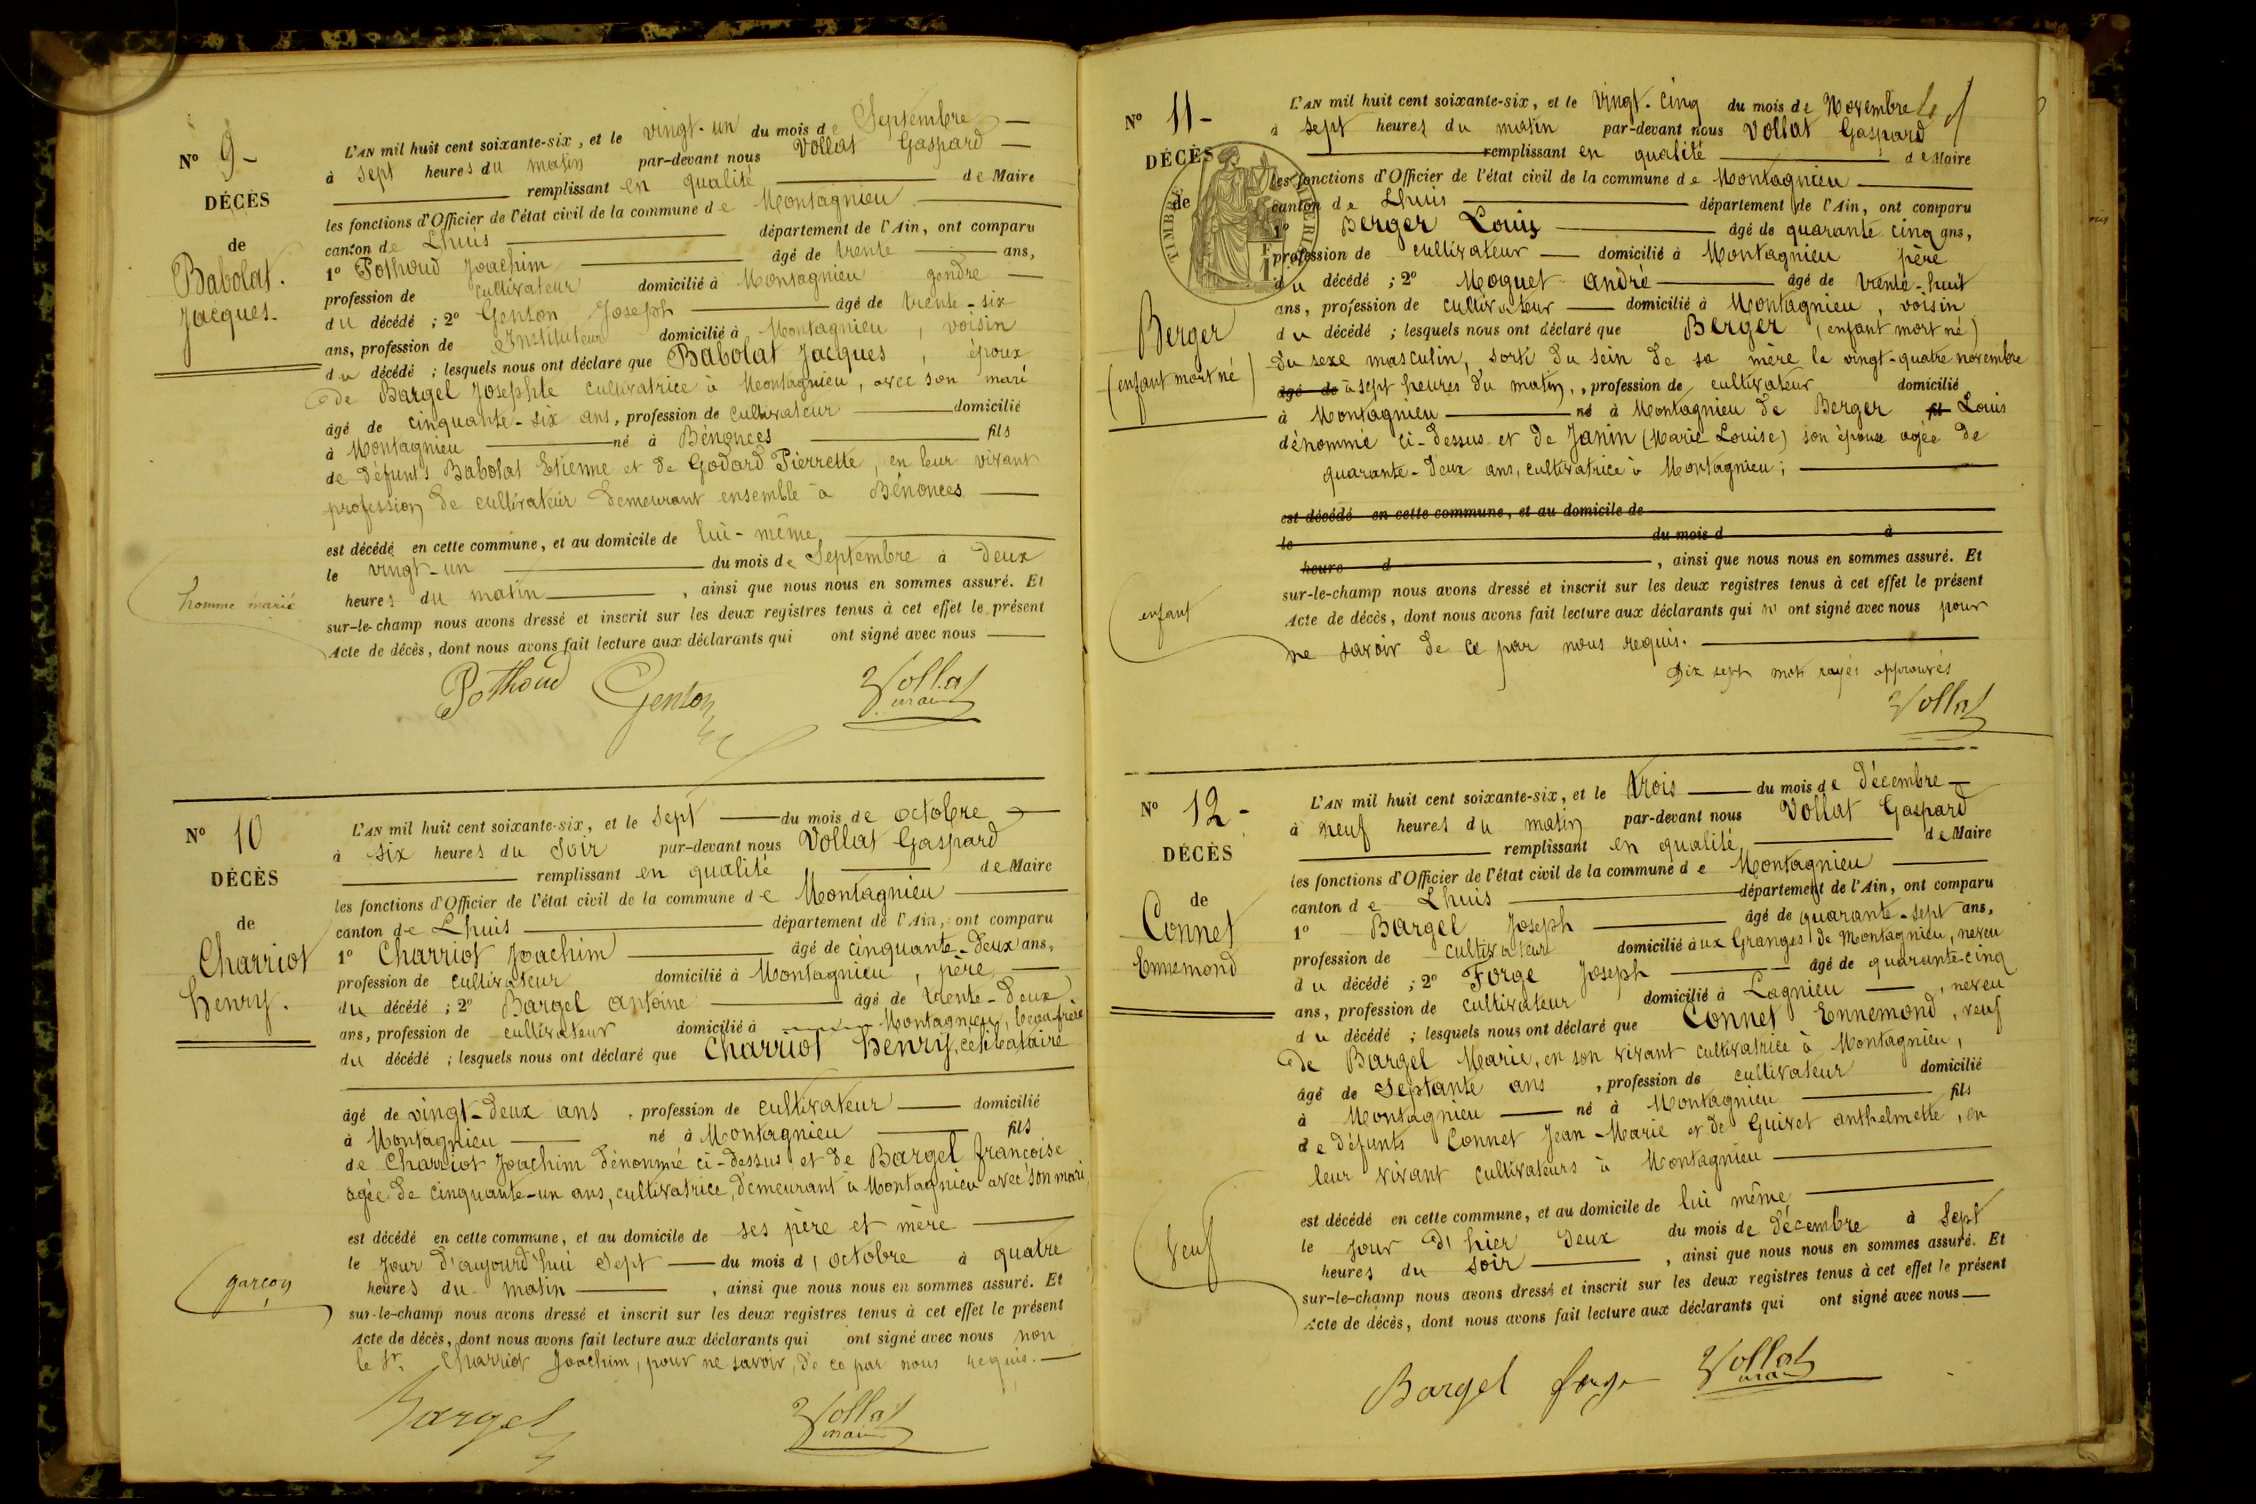 N° 9 -
DÉCÈS
de
Babolat.
Jacques.
homme marié
L'AN mil huit cent soixante-six, et le vingt-un du mois de Septembre
à sept heures du matin par-devant nous Vollat Gaspard
remplissant en qualité de Maire
les fonctions d'Officier de l'état civil de la commune de Montagnieu
canton de Lhuis département de l'Ain, ont comparu
1° Pothoud Joachim âgé de trente ans,
profession de cultivateur domicilié à Montagnieu gendre
du décédé ; 2° Genton Joseph âgé de trente-six
ans, profession de Instituteur domicilié à Montagnieu, voisin
du décédé ; lesquels nous ont déclaré que Babolat Jacques, époux
de Bargel Josephte cultivatrice à Montagnieu, avec son mari
âgé de cinquante-six ans, profession de cultivateur domicilié
à Montagnieu né à Bénonces fils
de défunts Babolat Etienne et de Godard Pierrette, en leur vivant
profession de cultivateur demeurant ensemble à Bénonces
est décédé en cette commune, et au domicile de lui-même
le vingt-un du mois de Septembre à deux
heures du matin, ainsi que nous nous en sommes assuré. Et
sur-le-champ nous avons dressé et inscrit sur les deux registres tenus à cet effet le présent
Acte de décès, dont nous avons fait lecture aux déclarants qui ont signé avec nous
Pothoud Genton Vollat
maire
N° 10
DÉCÈS
de
Charriot
henry.
garçon
L'AN mil huit cent soixante-six, et le sept du mois de octobre
à six heures du soir par-devant nous Vollat Gaspard
remplissant en qualité de Maire
les fonctions d'Officier de l'état civil de la commune de Montagnieu
canton de Lhuis département de l'Ain, ont comparu
1° Charriot Joachim âgé de cinquante-deux ans,
profession de cultivateur domicilié à Montagnieu, père
du décédé ; 2° Bargel antoine âgé de trente-deux
ans, profession de cultivateur domicilié à Montagnieu, beau-frère
du décédé ; lesquels nous ont déclaré que Charriot henry, célibataire
âgé de vingt-deux ans, profession de cultivateur domicilié
à Montagnieu né à Montagnieu fils
de Charriot Joachim dénommé ci-dessus et de Bargel françoise
agée de cinquante-un ans, cultivatrice, demeurant à Montagnieu avec son mari
est décédé en cette commune, et au domicile de ses père et mère
le jour d'aujourd'hui sept du mois d'octobre à quatre
heures du matin, ainsi que nous nous en sommes assuré. Et
sur-le-champ nous avons dressé et inscrit sur les deux registres tenus à cet effet le présent
Acte de décès, dont nous avons fait lecture aux déclarants qui ont signé avec nous non
le Sr. Charriot Joachim, pour ne savoir, de ce par nous requis.
Bargel Vollat
maire
N° 11 -
DÉCÈS
de
TIMBRE
Berger
(enfant mort né)
enfant
L'AN mil huit cent soixante-six, et le vingt-cinq du mois de Novembre
à sept heures du matin par-devant nous Vollat Gaspard
remplissant en qualité de Maire
les fonctions d'Officier de l'état civil de la commune de Montagnieu
canton de Lhuis département de l'Ain, ont comparu
1° Berger Louis âgé de quarante cinq ans,
profession de cultivateur domicilié à Montagnieu père
du décédé ; 2° Moquet andré âgé de trente-huit
ans, profession de cultivateur domicilié à Montagnieu, voisin
du décédé ; lesquels nous ont déclaré que Berger (enfant mort né)
du sexe masculin, sorti du sein de sa mère le vingt-quatre novembre
âgé de à sept heures du matin, profession de cultivateur domicilié
à Montagnieu né à Montagnieu de Berger fil Louis
dénommé ci-dessus et de Janin (Marie Louise) son épouse agée de
quarante-deux ans, cultivatrice à Montagnieu ;
est décédé en cette commune, et au domicile de
le du mois d à
heure d, ainsi que nous nous en sommes assuré. Et
sur-le-champ nous avons dressé et inscrit sur les deux registres tenus à cet effet le présent
Acte de décès, dont nous avons fait lecture aux déclarants qui n'ont signé avec nous pour
ne savoir de ce par nous requis.
Dix sept mots rayés approuvés
Vollat
N° 12 -
DÉCÈS
de
Connet
Ennemond
Veuf
L'AN mil huit cent soixante-six, et le trois du mois de décembre
à neuf heures du matin par-devant nous Vollat Gaspard
remplissant en qualité de Maire
les fonctions d'Officier de l'état civil de la commune de Montagnieu
canton de Lhuis département de l'Ain, ont comparu
1° Bargel Joseph âgé de quarante-sept ans,
profession de cultivateur domicilié aux Granges de Montagnieu, neveu
du décédé ; 2° Forge Joseph âgé de quarante-cinq
ans, profession de cultivateur domicilié à Lagnieu, neveu
du décédé ; lesquels nous ont déclaré que Connet Ennemond, veuf
de Bargel Marie, en son vivant cultivatrice à Montagnieu,
âgé de Septante ans, profession de cultivateur domicilié
à Montagnieu né à Montagnieu fils
de défunts Connet Jean-Marie et de Guivet anthelmette, en
leur vivant cultivateurs à Montagnieu
est décédé en cette commune, et au domicile de lui même
le jour d'hier deux du mois de décembre à sept
heures du soir, ainsi que nous nous en sommes assuré. Et
sur-le-champ nous avons dressé et inscrit sur les deux registres tenus à cet effet le présent
Acte de décès, dont nous avons fait lecture aux déclarants qui ont signé avec nous
Bargel forge Vollat
maire